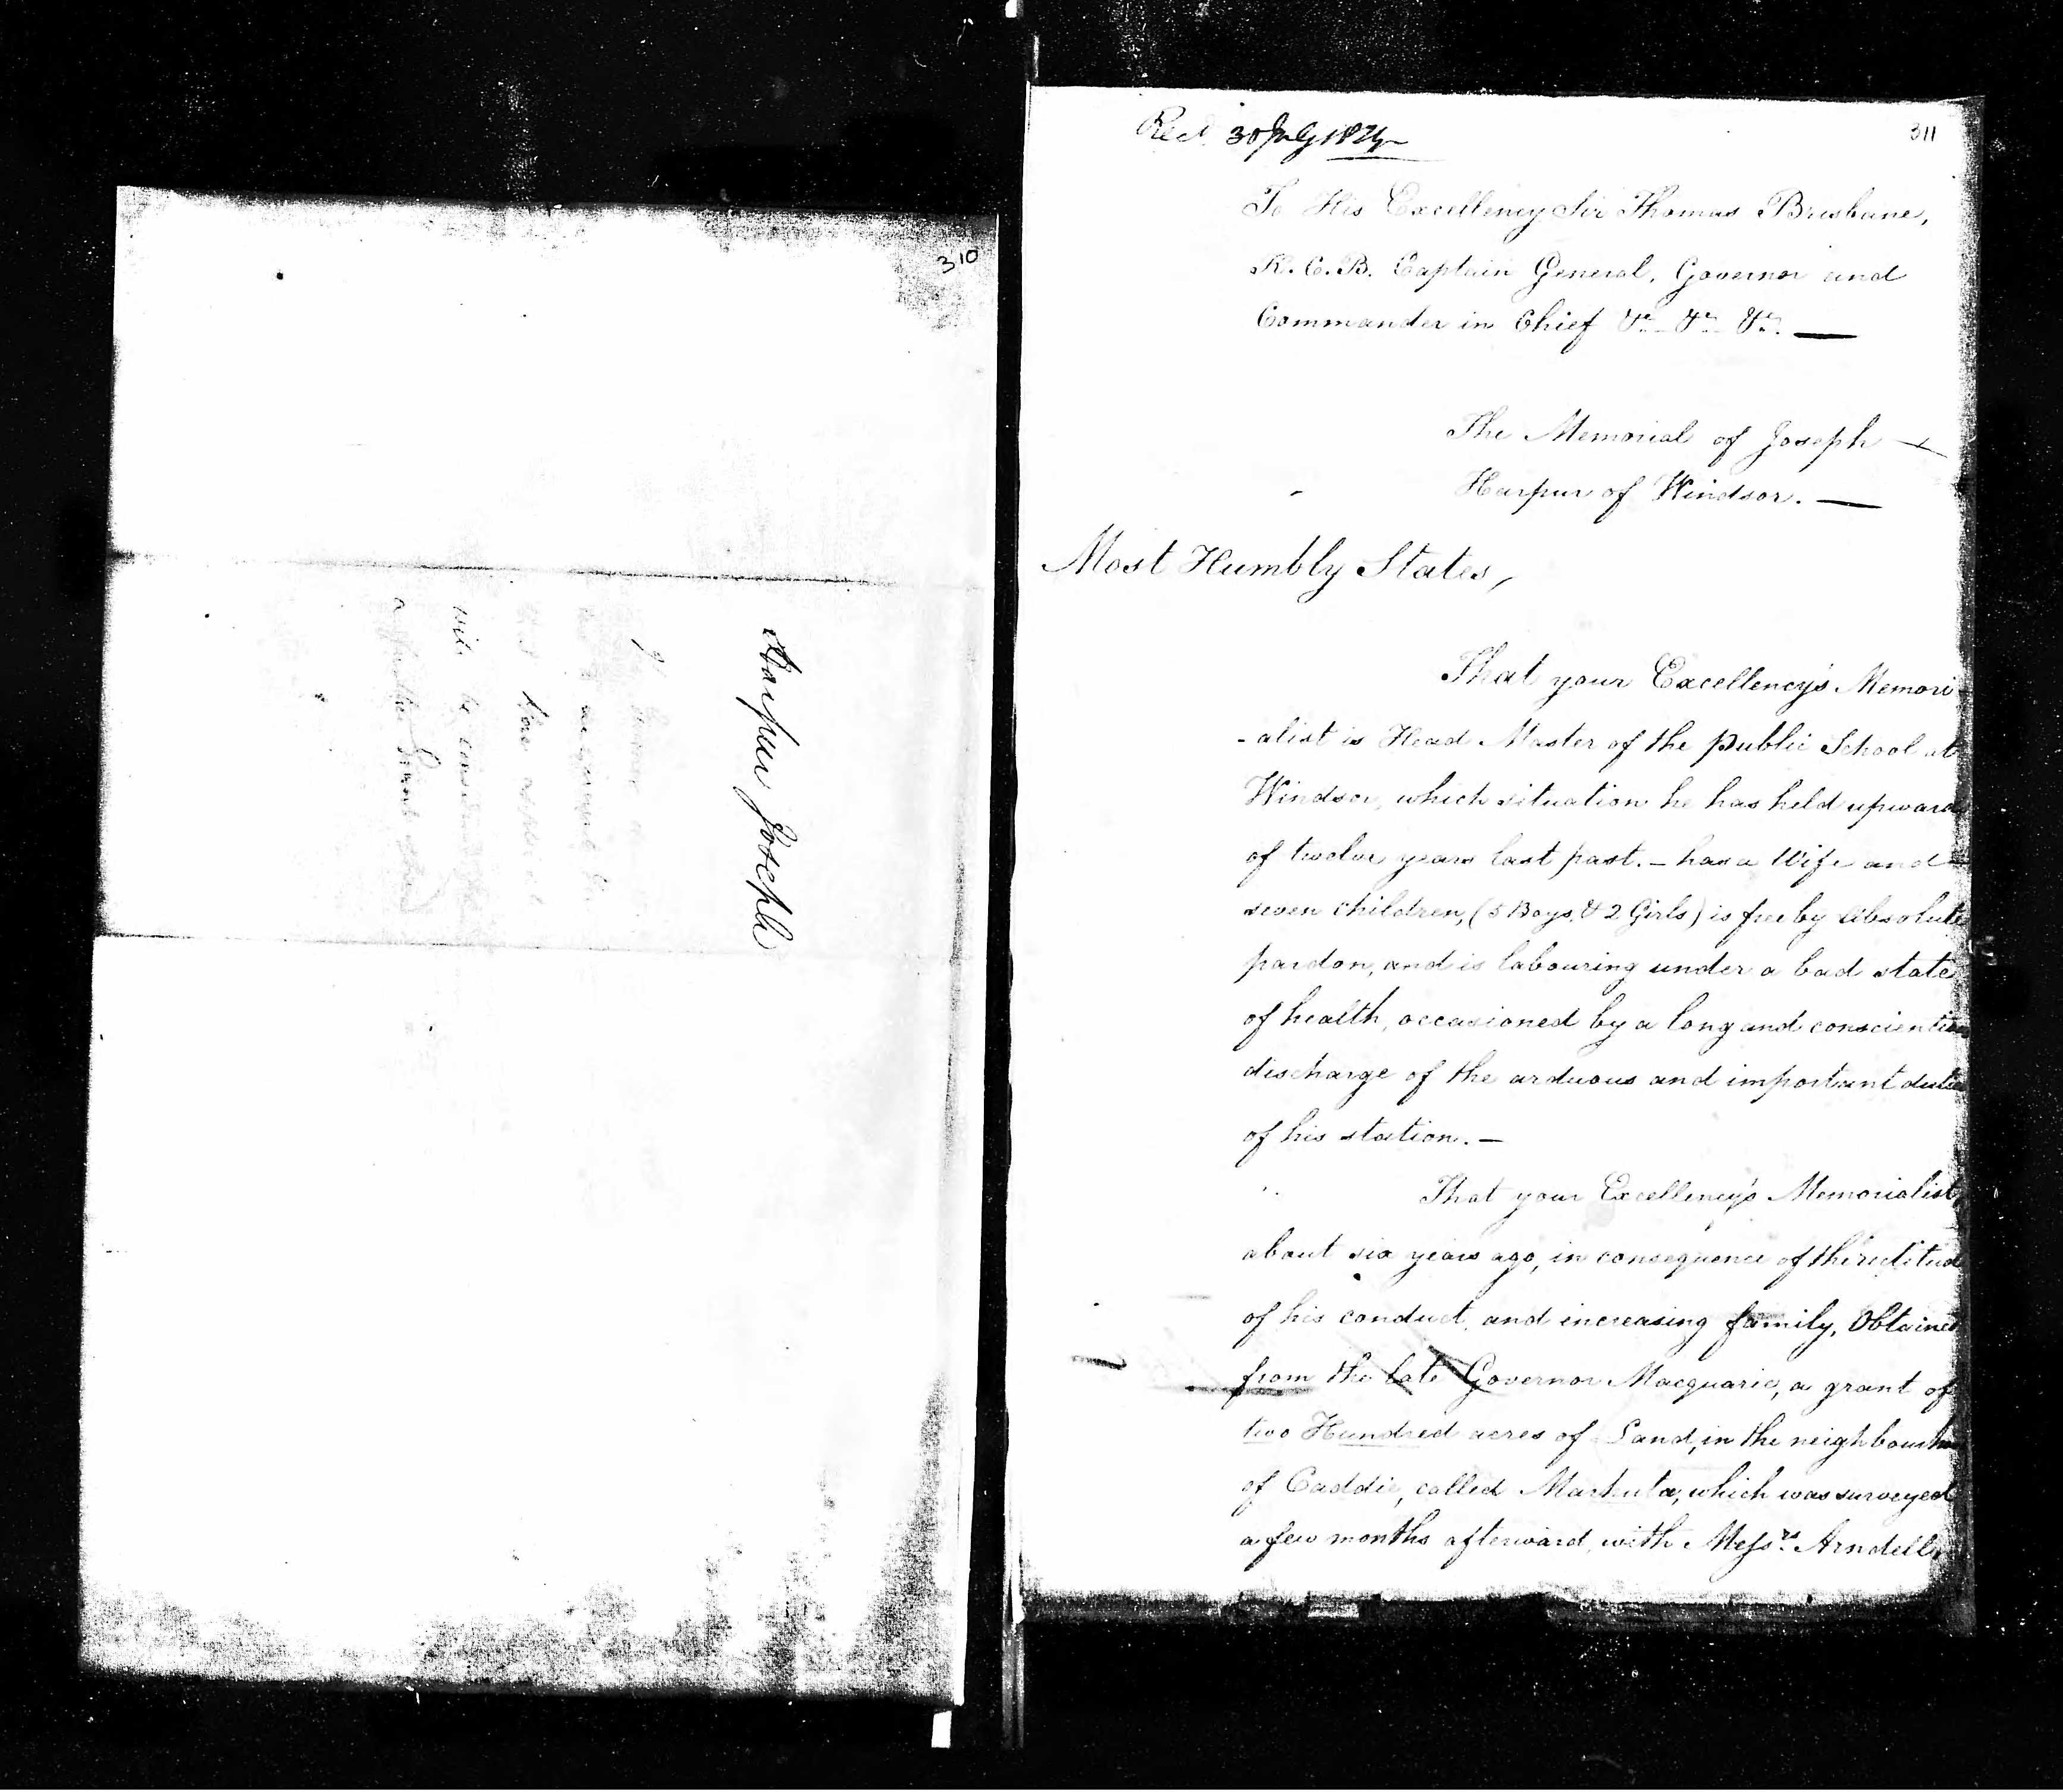 310
Harpur Joseph
will be
a further Grant
311
Recd. 30 July 1824
To His Excellency Sir Thomas Brisbane,
K. C. B. Captain General, Governor and
Commander in Chief &c. &c. &c. —
The Memorial of Joseph —
Harpur of Windsor. —
Most Humbly States,
That your Excellency's Memori-
-alist is Head Master of the public School at
Windsor, which situation he has held upward
of twelve years last past. – has a Wife and
seven children, (5 Boys, & 2 Girls) is free by Absolute
pardon, and is labouring under a bad state
of health, occasioned by a long and conscientious
discharge of the arduous and important duties
of his station. –
That your Excellency's Memorialist,
about six years ago, in consequence of the rectitude
of his conduct, and increasing family, Obtained
from the late Governor Macquarie, a grant of
two Hundred acres of Land, in the neighbourho
of Caddie, called Markuta, which was surveyed
a few months afterward, with Messrs. Arndell,